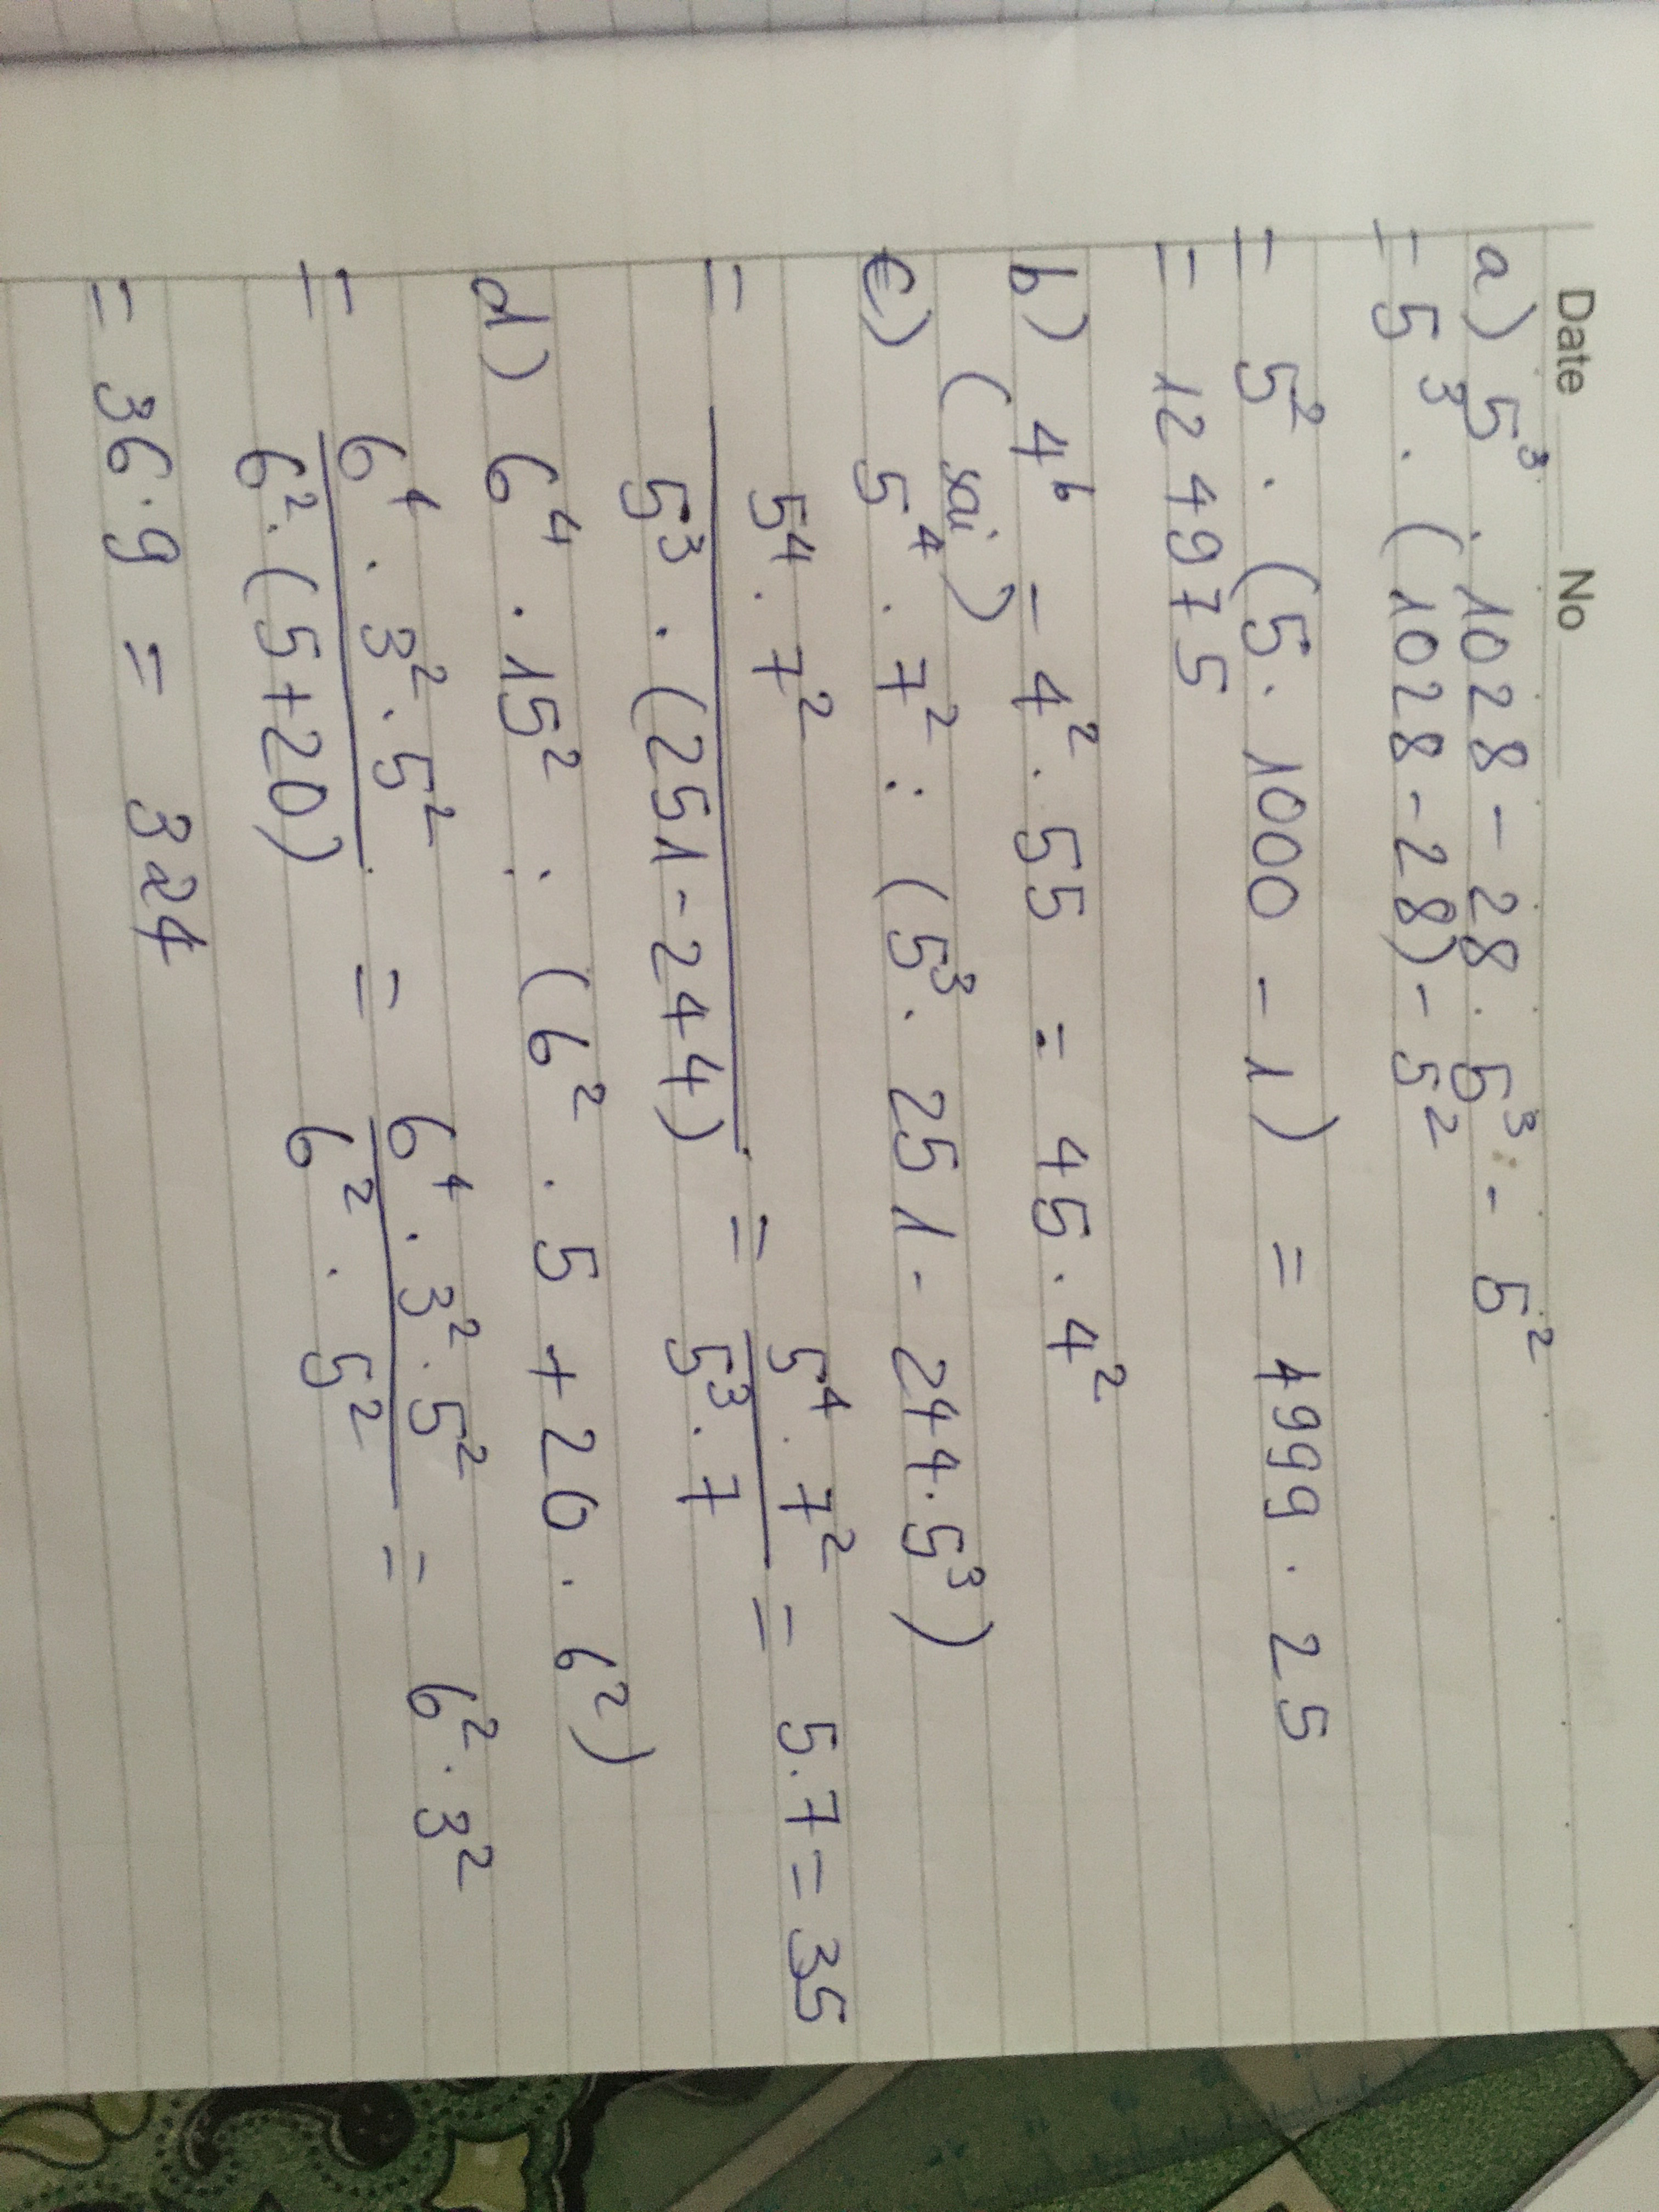 Date No
a) 5³ . 1028 - 28 . 5³ - 5²
= 5³ . (1028 - 28) - 5²
= 5² . (5 . 1000 - 1) = 4999 . 25
= 124975
b) 4⁶ - 4² . 55 = 45 . 4²
(sai)
c) 5⁴ . 7² : (5³ . 251 - 244 . 5³)
= 5⁴ . 7² / 5³ . (251 - 244) = 5⁴ . 7² / 5³ . 7 = 5 . 7 = 35
d) 6⁴ . 15² : (6² . 5 + 20 . 6²)
= 6⁴ . 3² . 5² / 6² . (5 + 20) = 6⁴ . 3² . 5² / 6² . 5² = 6² . 3²
= 36 . 9 = 324